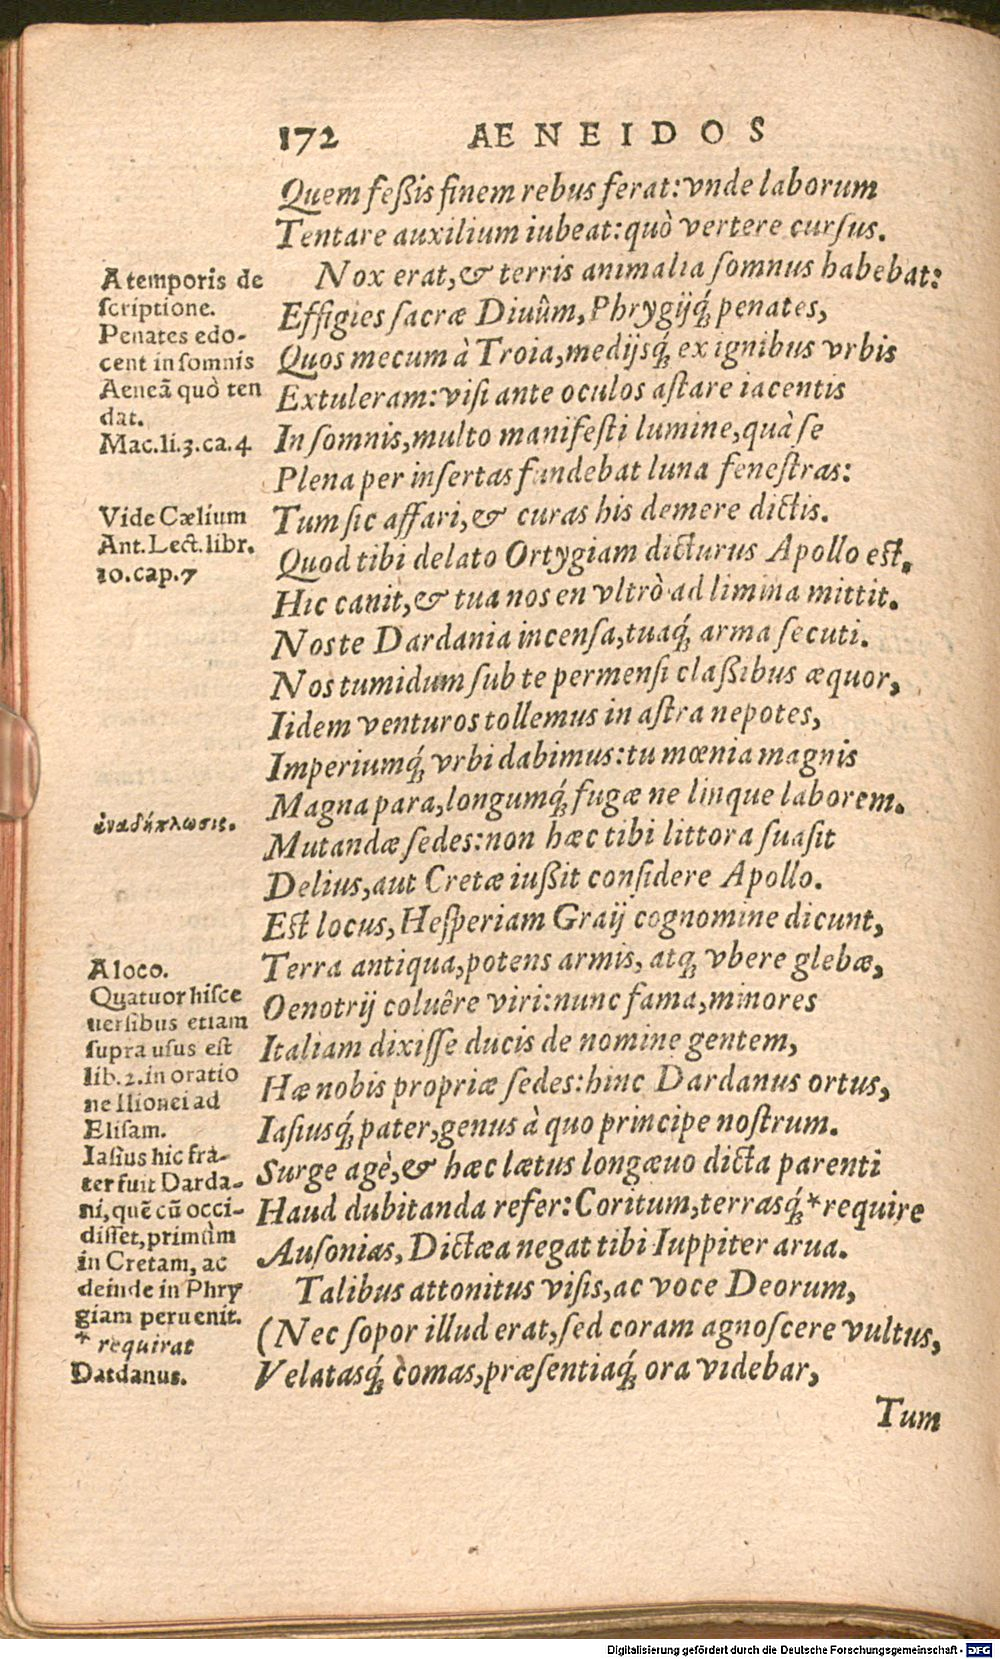 172 AENEIDOS
Quem feßis finem rebus ferat: vnde laborum
Tentare auxilium iubeat: quò vertere cursus.
Nox erat, & terris animalia somnus habebat:
Effigies sacræ Diuûm, Phrygijq́; penates,
Quos mecum à Troia, medijsq́; ex ignibus vrbis
Extuleram: visi ante oculos astare iacentis
In somnis, multo manifesti lumine, quà se
Plena per insertas fundebat luna fenestras:
Tum sic affari, & curas his demere dictis.
Quod tibi delato Ortygiam dicturus Apollo est,
Hic canit, & tua nos en vltrò ad limina mittit.
Nos te Dardania incensa, tuaq́; arma secuti.
Nos tumidum sub te permensi claßibus æquor,
Iidem venturos tollemus in astra nepotes,
Imperiumq́; vrbi dabimus: tu mœnia magnis
Magna para, longumq́; fugæ ne linque laborem.
Mutandæ sedes: non hæc tibi littora suasit
Delius, aut Cretæ iußit considere Apollo.
Est locus, Hesperiam Graij cognomine dicunt,
Terra antiqua, potens armis, atq; vbere glebæ,
Oenotrij coluêre viri: nunc fama, minores
Italiam dixisse ducis de nomine gentem,
Hæ nobis propriæ sedes: hinc Dardanus ortus,
Iasiusq́; pater, genus à quo principe nostrum.
Surge agè, & hæc lætus longæuo dicta parenti
Haud dubitanda refer: Coritum, terrasq́; *require
Ausonias, Dictæa negat tibi Iuppiter arua.
Talibus attonitus visis, ac voce Deorum,
(Nec sopor illud erat, sed coram agnoscere vultus,
Velatasq́; comas, præsentiaq́; ora videbar,
Tum
A temporis de
scriptione.
Penates edo-
cent in somnis
Aeneã quò ten
dat.
Mac. li. 3. ca. 4
Vide Cælium
Ant. Lect. libr.
10. cap. 7
ἀναδίπλωσις.
A loco.
Quatuor hisce
uersibus etiam
supra usus est
lib. 2. in oratio
ne Ilionei ad
Elisam.
Iasius hic fra-
ter fuit Darda-
ni, quẽ cũ occi-
disset, primùm
in Cretam, ac
deinde in Phry
giam peruenit.
* requirat
Dardanus.
Digitalisierung gefördert durch die Deutsche Forschungsgemeinschaft - DFG